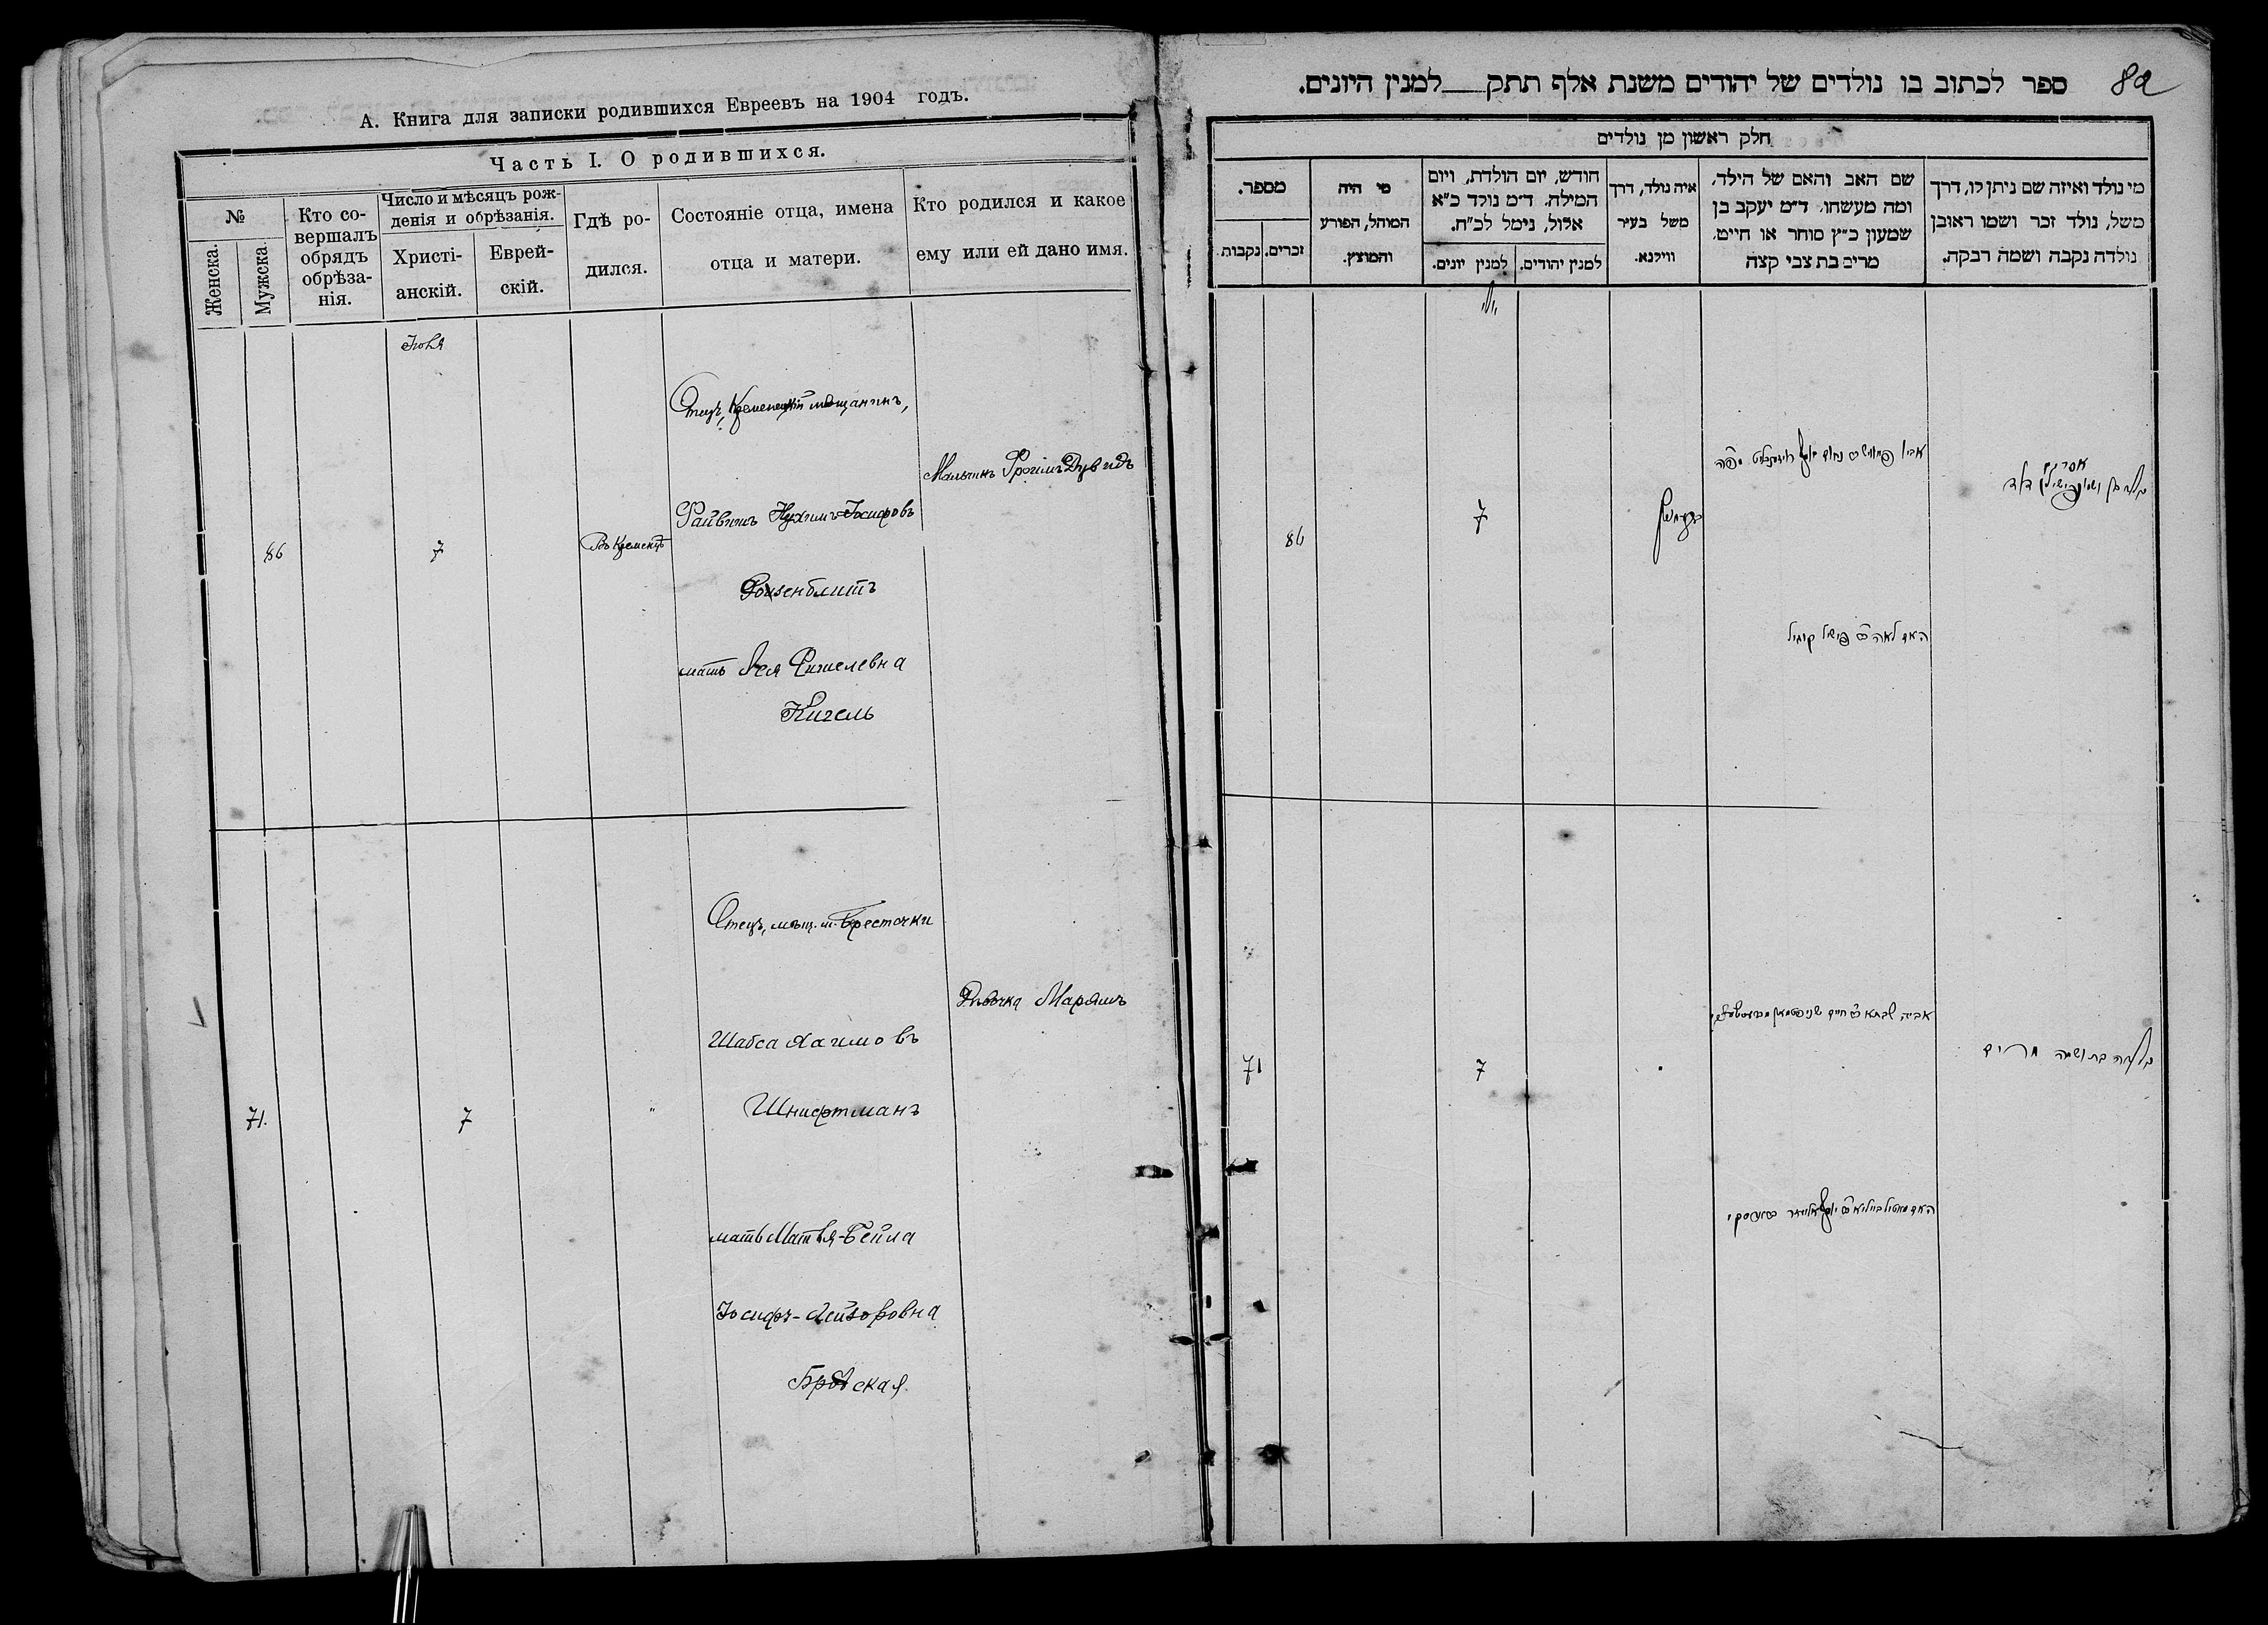 А. Книга для записки родившихся Евреевъ на 1904 годъ.
Часть I. О родившихся.
№
Женска.
Мужска.
Кто со-
вершалъ
обрядъ
обрѣза-
нія.
Число и мѣсяцъ рож-
денія и обрѣзанія.
Христі-
анскій.
Еврей-
скій.
Гдѣ ро-
дился.
Состояніе отца, имена
отца и матери.
Кто родился и какое
ему или ей дано имя.
86
7
Въ Кременцѣ
Отецъ, Кременецкій мѣщанинъ,
Файвишъ Нухимъ-Іосифовъ
Розенблитъ
мать Лея Фишелевна
Кигель
Мальчикъ
71.
7
"
Отецъ, мѣщ. м. Берестечки
Шабса Хаимовъ
Шнифтманъ
мать Матля-Бейла
Іосифъ-Лейзоровна
Дѣвочка Маріямъ
82
ספר לכתוב בו נולדים של יהודים משנת אלף תתק למנין היונים.
חלק ראשון מן נולדים
מי נולד ואיזה שם ניתן לו, דרך
משל, נולד זכר ושמו ראובן
נולדה נקבה ושמה רבקה.
שם האב והאם של הילד,
ומה מעשהו. ד״מ יעקב בן
שמעון כ״ץ סוחר או חייט,
מרים בת צבי קצה
איה נולד, דרך
משל בעיר
ווילנא.
חודש, יום הולדת, ויום
המילה. ד״מ נולד כ״א
אלול, נימל לכ״ח.
למנין יהודים.
למנין יונים.
מי היה
המוהל, הפורע
והמוצץ.
מספר.
זכרים.
נקבות.
יולי
86
7
האם לאה פישל קיגיל
71
7
נולדה בת ושמה מרים